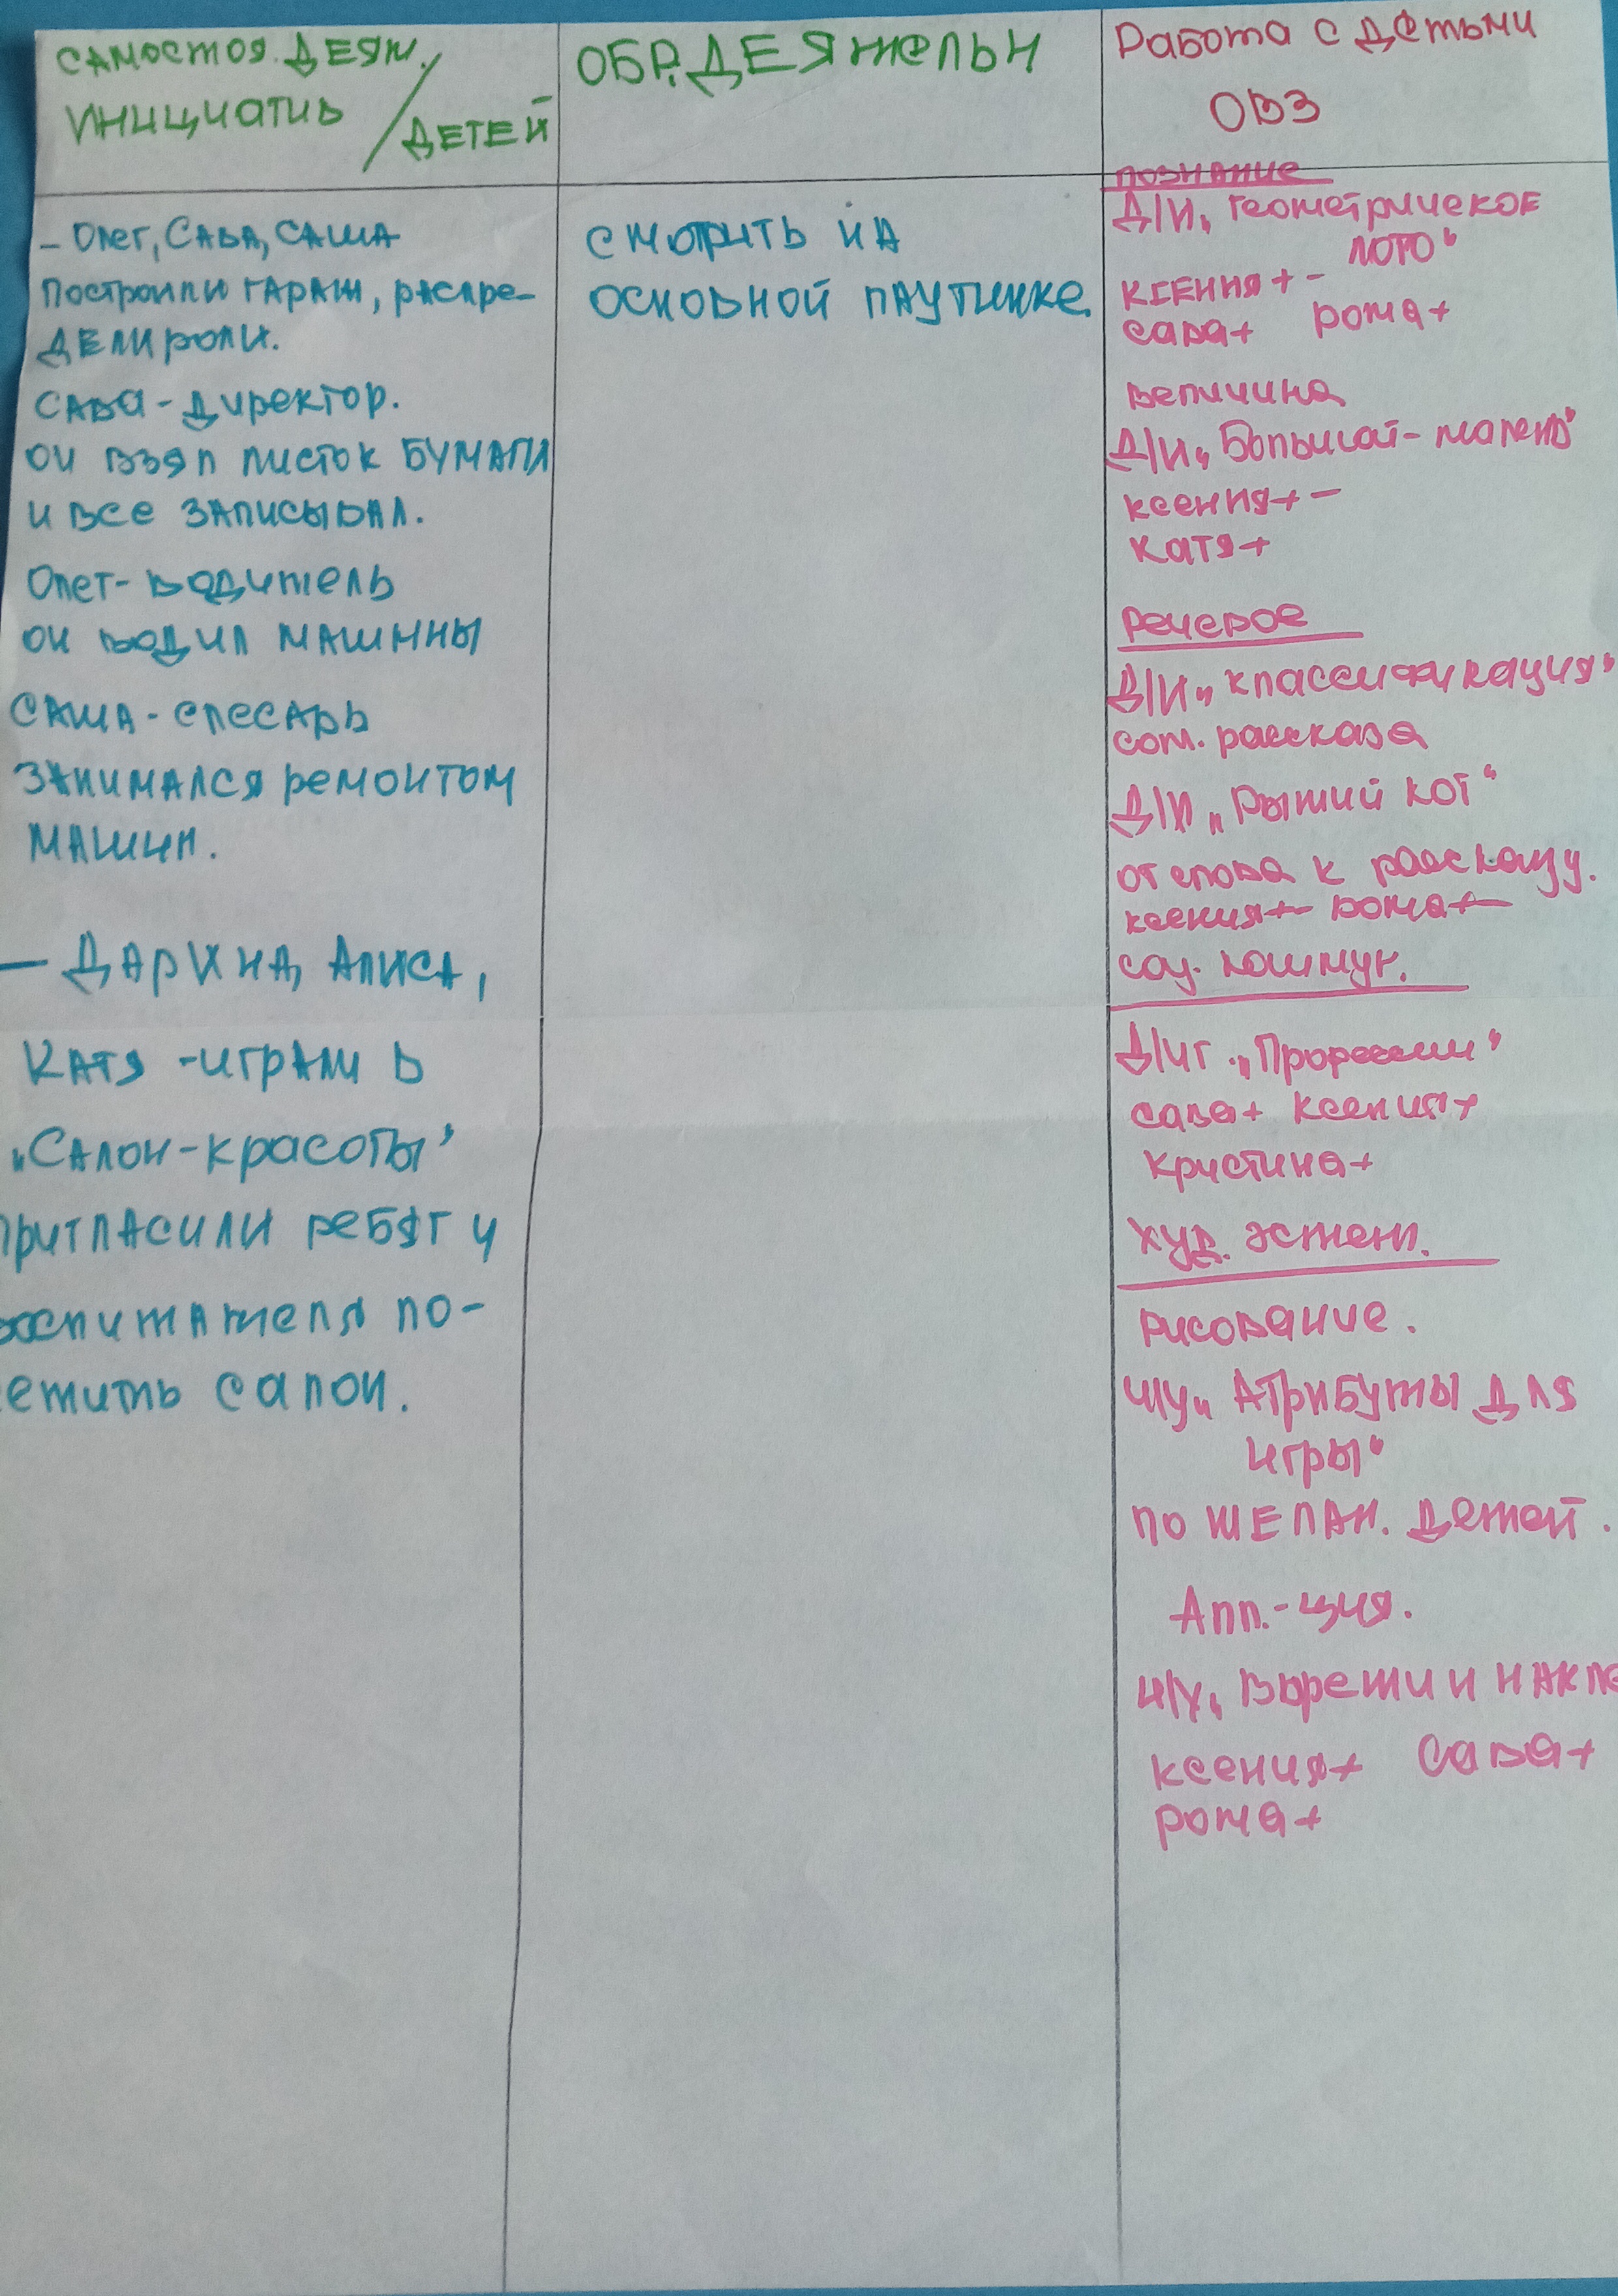 САМОСТОЯ. ДЕЯТ. /
ИНИЦИАТИВ / ДЕТЕЙ
- Олег, САВА, САША
Построили ГАРАЖ, распре-
ДЕЛИ роли.
САВА - Директор.
он взял листок БУМАГИ
и все записывал.
Олег - водитель
он водил машины
САША - слесарь
занимался ремонтом
машин.
- ДАРИНА, Алиса,
Катя - играли в
"Салон-красоты"
пригласили ребят и
воспитателя по-
етить салон.
ОБР. ДЕЯТЕЛЬН
смотрить на
основной паутинке.
Работа с детьми
ОВЗ
познание
Д/И "Геометрическое
лото"
Ксения + -
сава + рома +
величина
Д/И "Большой - малень"
ксения + -
катя +
Речевое
Д/И "классификация"
сот. рассказа
Д/И "Рыжий кот"
от слова к рассказу.
ксения +- рома +-
соц. коммун.
Д/иг. "Профессии"
сава + ксения +
кристина +
Худ. эстет.
Рисование.
И/У "Атрибуты для
игры"
по желан. детей.
Апп.-ция.
И/У "Вырежи и накле
ксения + Сава +
рома +